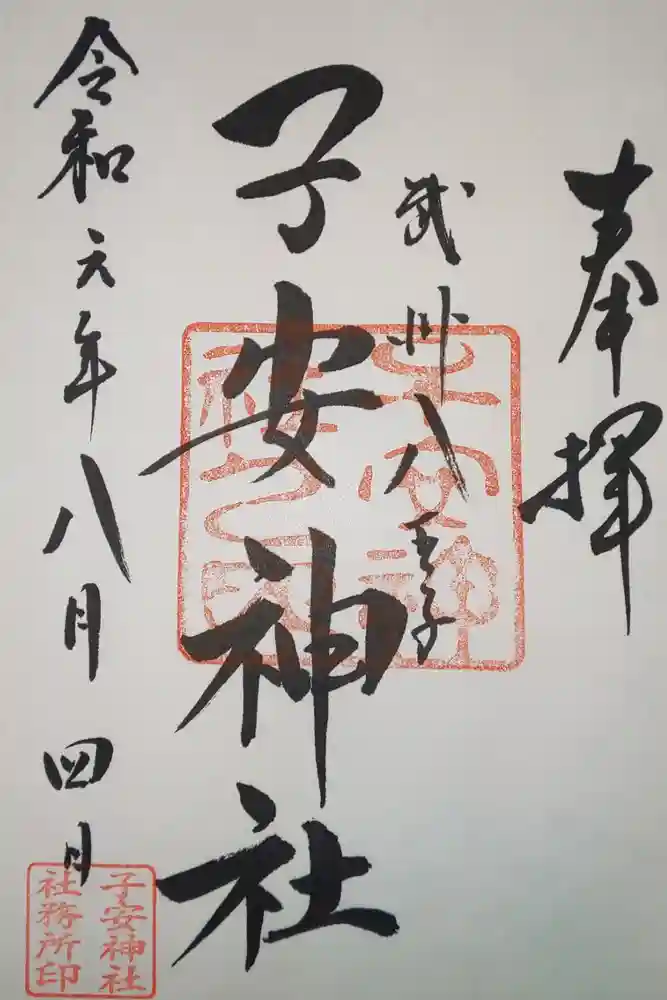 奉拝
武州八王子
子安神社
子安神
社之印
令和六年八月四日
子安神社
社務所印